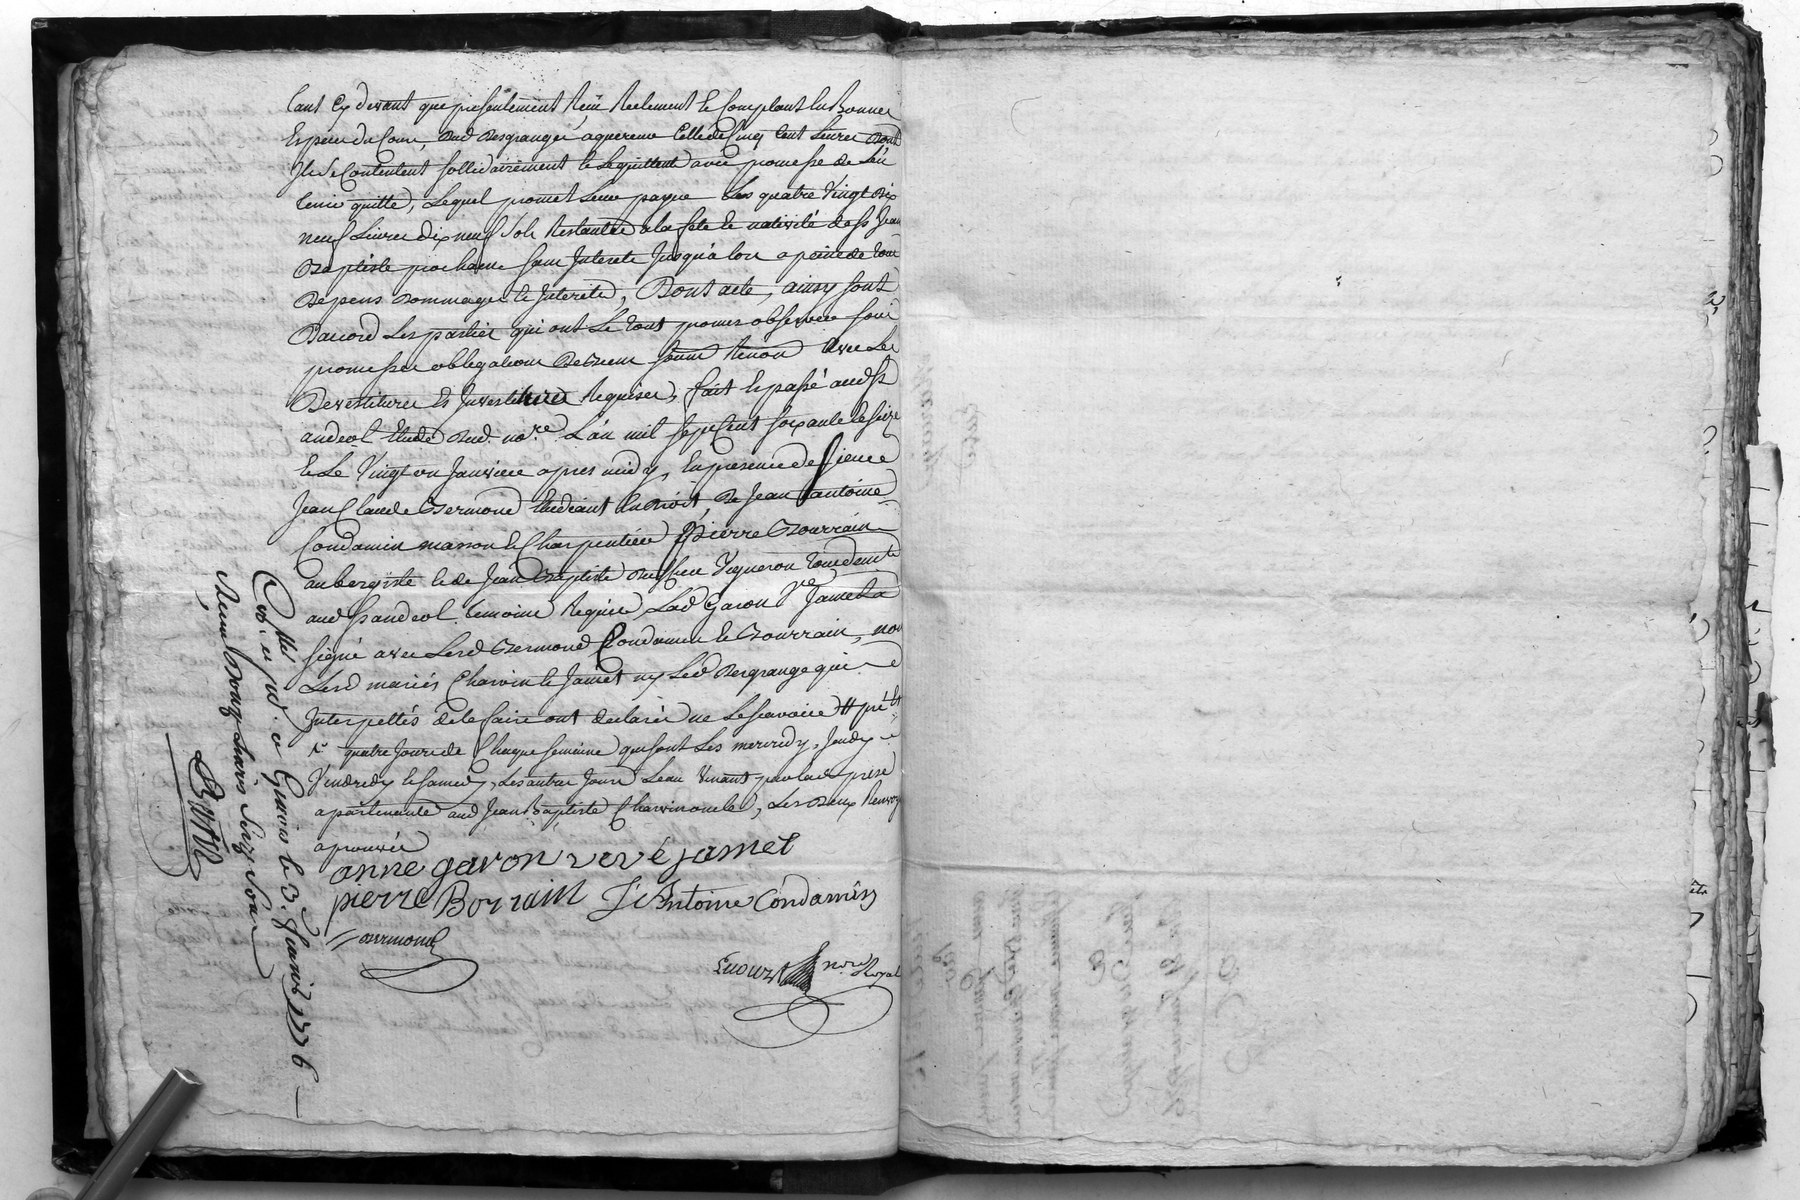 tant cy devant que presentement Reçu Reelement et Comptant En Bonnes
Especes du Cour, dud desgranges aquereur Celle de Cinq Cent Livres dont
Ils Se Contentent sollidairement et Le quittent avec promesse de L'en
tenir quitte, Lequel promet Leur payer Les quatre Vingt dix
neuf Livres dix neuf Sols Restantes a la fete de nativité de St Jean
Baptiste prochaine sans Interets Jusqu'a lors a peine de tous
Depens dommages et Interets, Dont acte, ainsy sont
D'acord Les parties qui ont Le tout promis observer sous
promesses obligations de Biens soumis Renon avec Les
Devestitures Et Investitures Requises, fait Et passé aud St
andeol Etude dud. no.re L'an mil sept Cent soixante et seize
et Le Vingt un Janvier apres midy, En presence de sieur
Jean Claude Bermond Etudiant En droit, de Jean antoine
Condamin masson et Charpentier Pierre Bourrain
aubergiste et de Jean Baptiste Vigneron tous demts
aud St andeol temoins Requis, Lad Garon Ve Jamet a
signé avec Lesd Bermond Condamin et Bourrain, non
Lesd mariés Charvin et Jamet ny Led desgranges qui
Interpellés de le faire ont declarés ne Le scavoir #
quatre Jours de Chaque semaine qui sont Les mercredy, Jeudy
Vendredy et samedy, Les autres Jours L'eau Venant par lad prise
apartenante aud Jean Baptiste Les deux Renvoys
aprouvés
anne garon veve jamet
pierre Borrain J Antoine Condamin
Bermond
no.re Royal
a Givors le 3. Janvier 1776